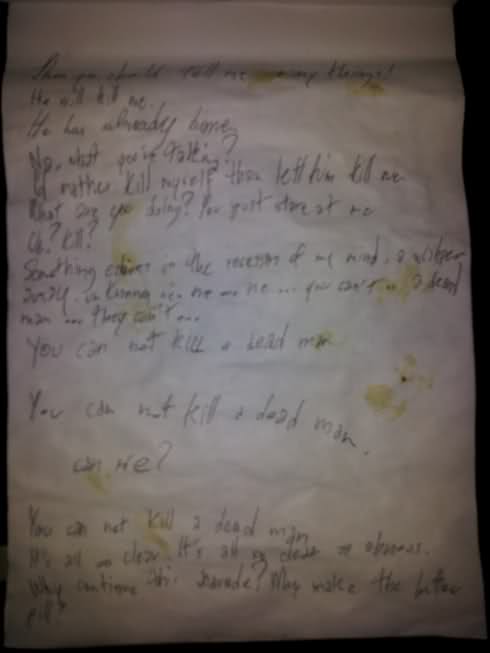 you should tell me things!
He will kill me.
He has already home,
No, what you're talking?
I'd rather kill myself than lett him kill me
What are you doing? You just stare at me
Oh? Kill?
Something in the recesses of my mind, a whisper
me ... me ... you can't a dead
man ... they can't ...
You can not kill a dead man
You can not kill a dead man.
can we?
You can not kill a dead man
It's all so clear. It's all so clear so obvious.
Why continue this charade? Why make the bitter
pill?